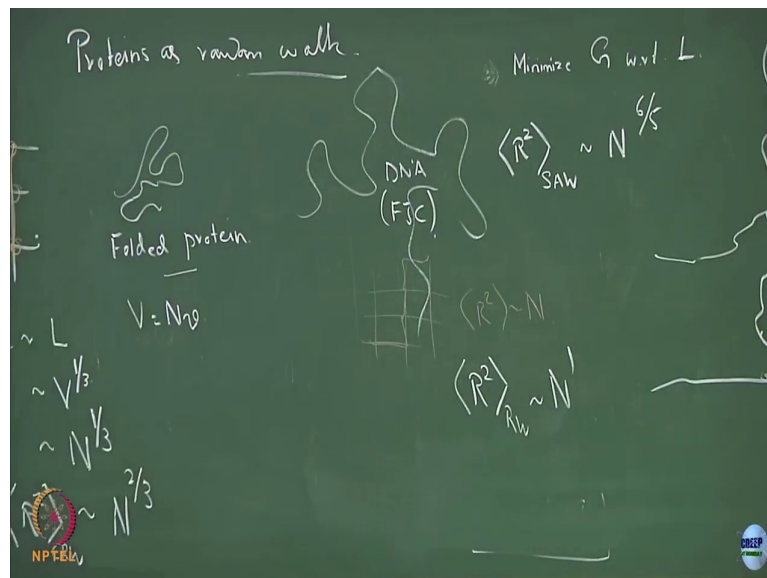 Proteins as random walk.
Minimize G w.r.t. L.
⟨R²⟩SAW ~ N^6/5
DNA
(FJC)
Folded protein
V = Nv
⟨R²⟩ ~ N
⟨R²⟩RW ~ N^1
~ L
~ V^1/3
~ N^1/3
⟨R²⟩ ~ N^2/3
NPTEL
CDEEP